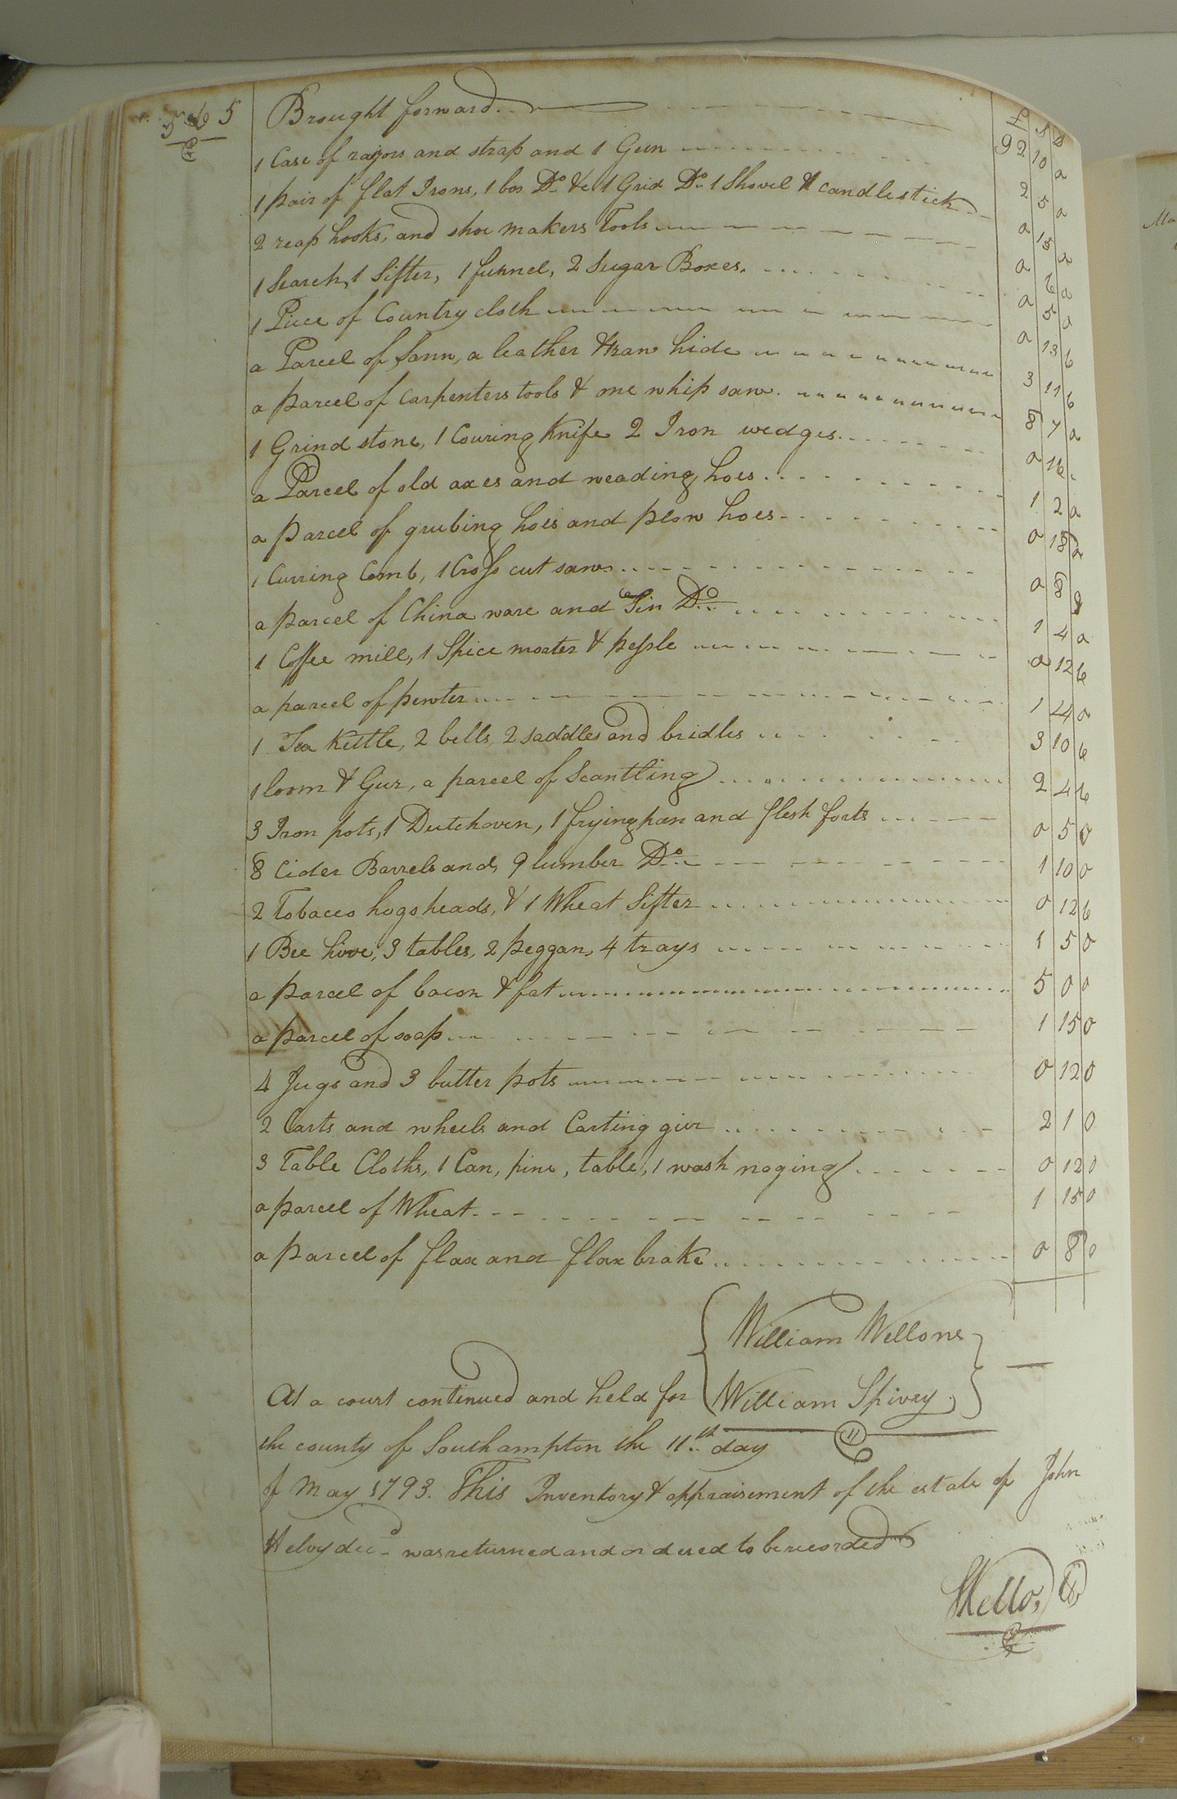 Brought forward £ S D
92 10 0
1 Case of razors and strap and 1 Gun 2 5 0
1 pair of flat Irons, 1 box Do. &c 1 Grid Do. 1 Shovel & candlestick 0 15 0
2 reap hooks, and shoe makers Tools 0 6 0
1 Search, 1 Sifter, 1 funnel, 2 Sugar Boxes. 0 5 0
1 Piece of Country cloth 0 13 6
a Parcel of , a leather & raw hide 3 11 6
a parcel of carpenters tools & one whip saw. 8 7 0
1 Grind stone, 1 Couring Knife 2 Iron wedges 0 16
a Parcel of old axes and weading hoes 1 2 0
a parcel of grubing hoes and plow hoes 0 18 0
1 Curring Comb, 1 Cross cut saw 0 8 9
a parcel of China ware and Tin Do. 1 4 0
1 Coffee mill, 1 Spice morter & pessle 0 12 6
a parcel of pewter 1 4 0
1 Tea Kettle, 2 bells, 2 saddles and bridles 3 10 6
1 loom & Gur, a parcel of Scantling 2 4 6
3 Iron pots, 1 Dutchoven, 1 frying pan and flesh forks 0 5 0
8 Cider Barrels and 9 lumber Do. 1 10 0
2 Tobacco hogsheads, & 1 Wheat Sifter 0 12 6
1 Bee hive, 3 tables, 2 peggan, 4 trays 1 5 0
a parcel of bacon & fat 5 0 0
a parcel of soap 1 15 0
4 Jugs and 3 butter pots 0 12 0
2 Carts and wheels and Carting giur 2 1 0
3 Table Cloths, 1 Can, pine, table, 1 wash noging 0 12 0
a parcel of Wheat 1 15 0
a parcel of flax and flax brake 0 8 0
William Wellons
William Spivey
At a court continued and held for
the county of Southampton the 11th day
of May 1793. This Inventory & appraisement of the estate of John
Helvy decd was returned and ordered to be recorded